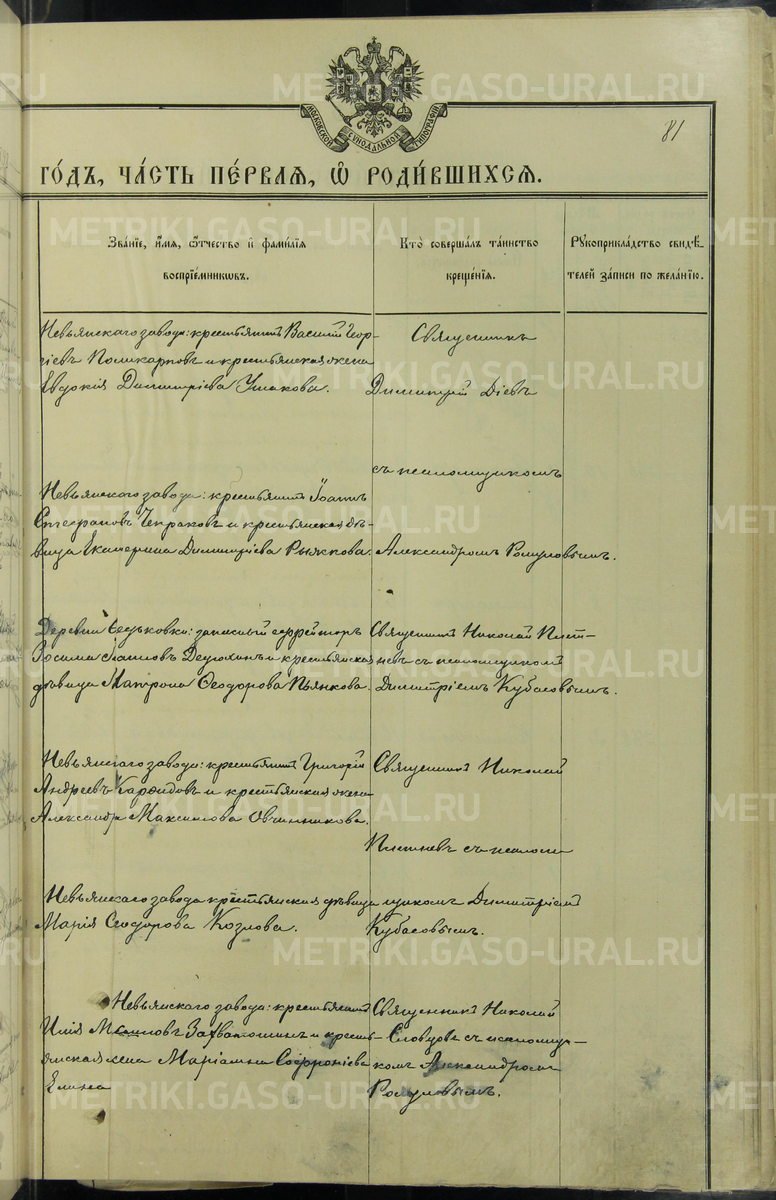 МОСКОВСКОЙ СѴНОДАЛЬНОЙ ТИПОГРАФІИ
81
ГО́ДЪ, ЧА́СТЬ ПЕ́РВАЯ, Ѡ҆ РОДИ́ВШИХСЯ.
Зва́нїе, и҆́мя, ѻ҆́тчество и҆ фами́лїя
воспрїе́мникѡвъ.
Кто̀ соверша́лъ та́инство
креще́нїя.
Рꙋкоприкла́дство свидѣ́-
телей за́писи по жела́нїю.
Невьянскаго завода: крестьянинъ Василій Геор-
гіевъ Поликарповъ и крестьянская жена
Евдокія Димитріева Ушакова.
Священникъ
Димитрій Діевъ
съ псаломщикомъ
Александромъ Ромуловымъ.
Невьянскаго завода: крестьянинъ Іоаннъ
Стефановъ Чепраковъ и крестьянская дѣ-
вица Екатерина Димитріева
Деревни Ѳедьковки: запасный ефрейторъ
Зосима и крестьянская
дѣвица Матрона Ѳеодорова Пьянкова.
Священникъ Николай Плет-
невъ съ псаломщикомъ
Димитріемъ Кубасовымъ.
Невьянскаго завода: крестьянинъ Григорій
Андреевъ и крестьянская жена
Александра Максимова Овчинникова.
Священникъ Николай
Плетневъ съ псалом
щикомъ Димитріемъ
Кубасовымъ.
Невьянскаго завода крестьянская дѣвица
Марія Ѳеодорова Козлова.
Невьянскаго завода: крестьянинъ
Илія и кресть-
янская жена Маріамна Софроніева
Елина
Священникъ Николай
Словцовъ съ псаломщи-
комъ Александромъ
Ромуловымъ.
METRIKI.GASO-URAL.RU